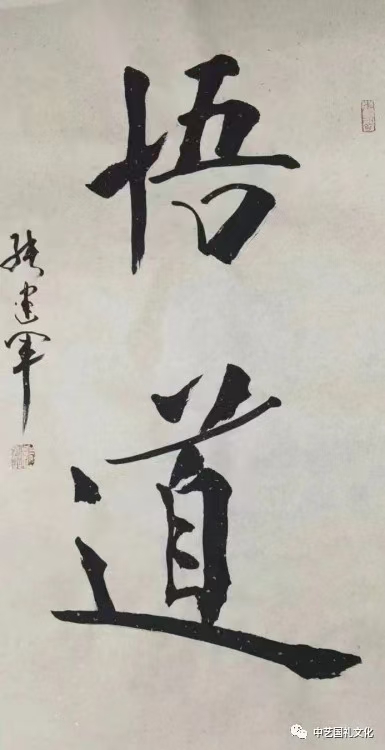 悟
道
建军
中艺国礼文化